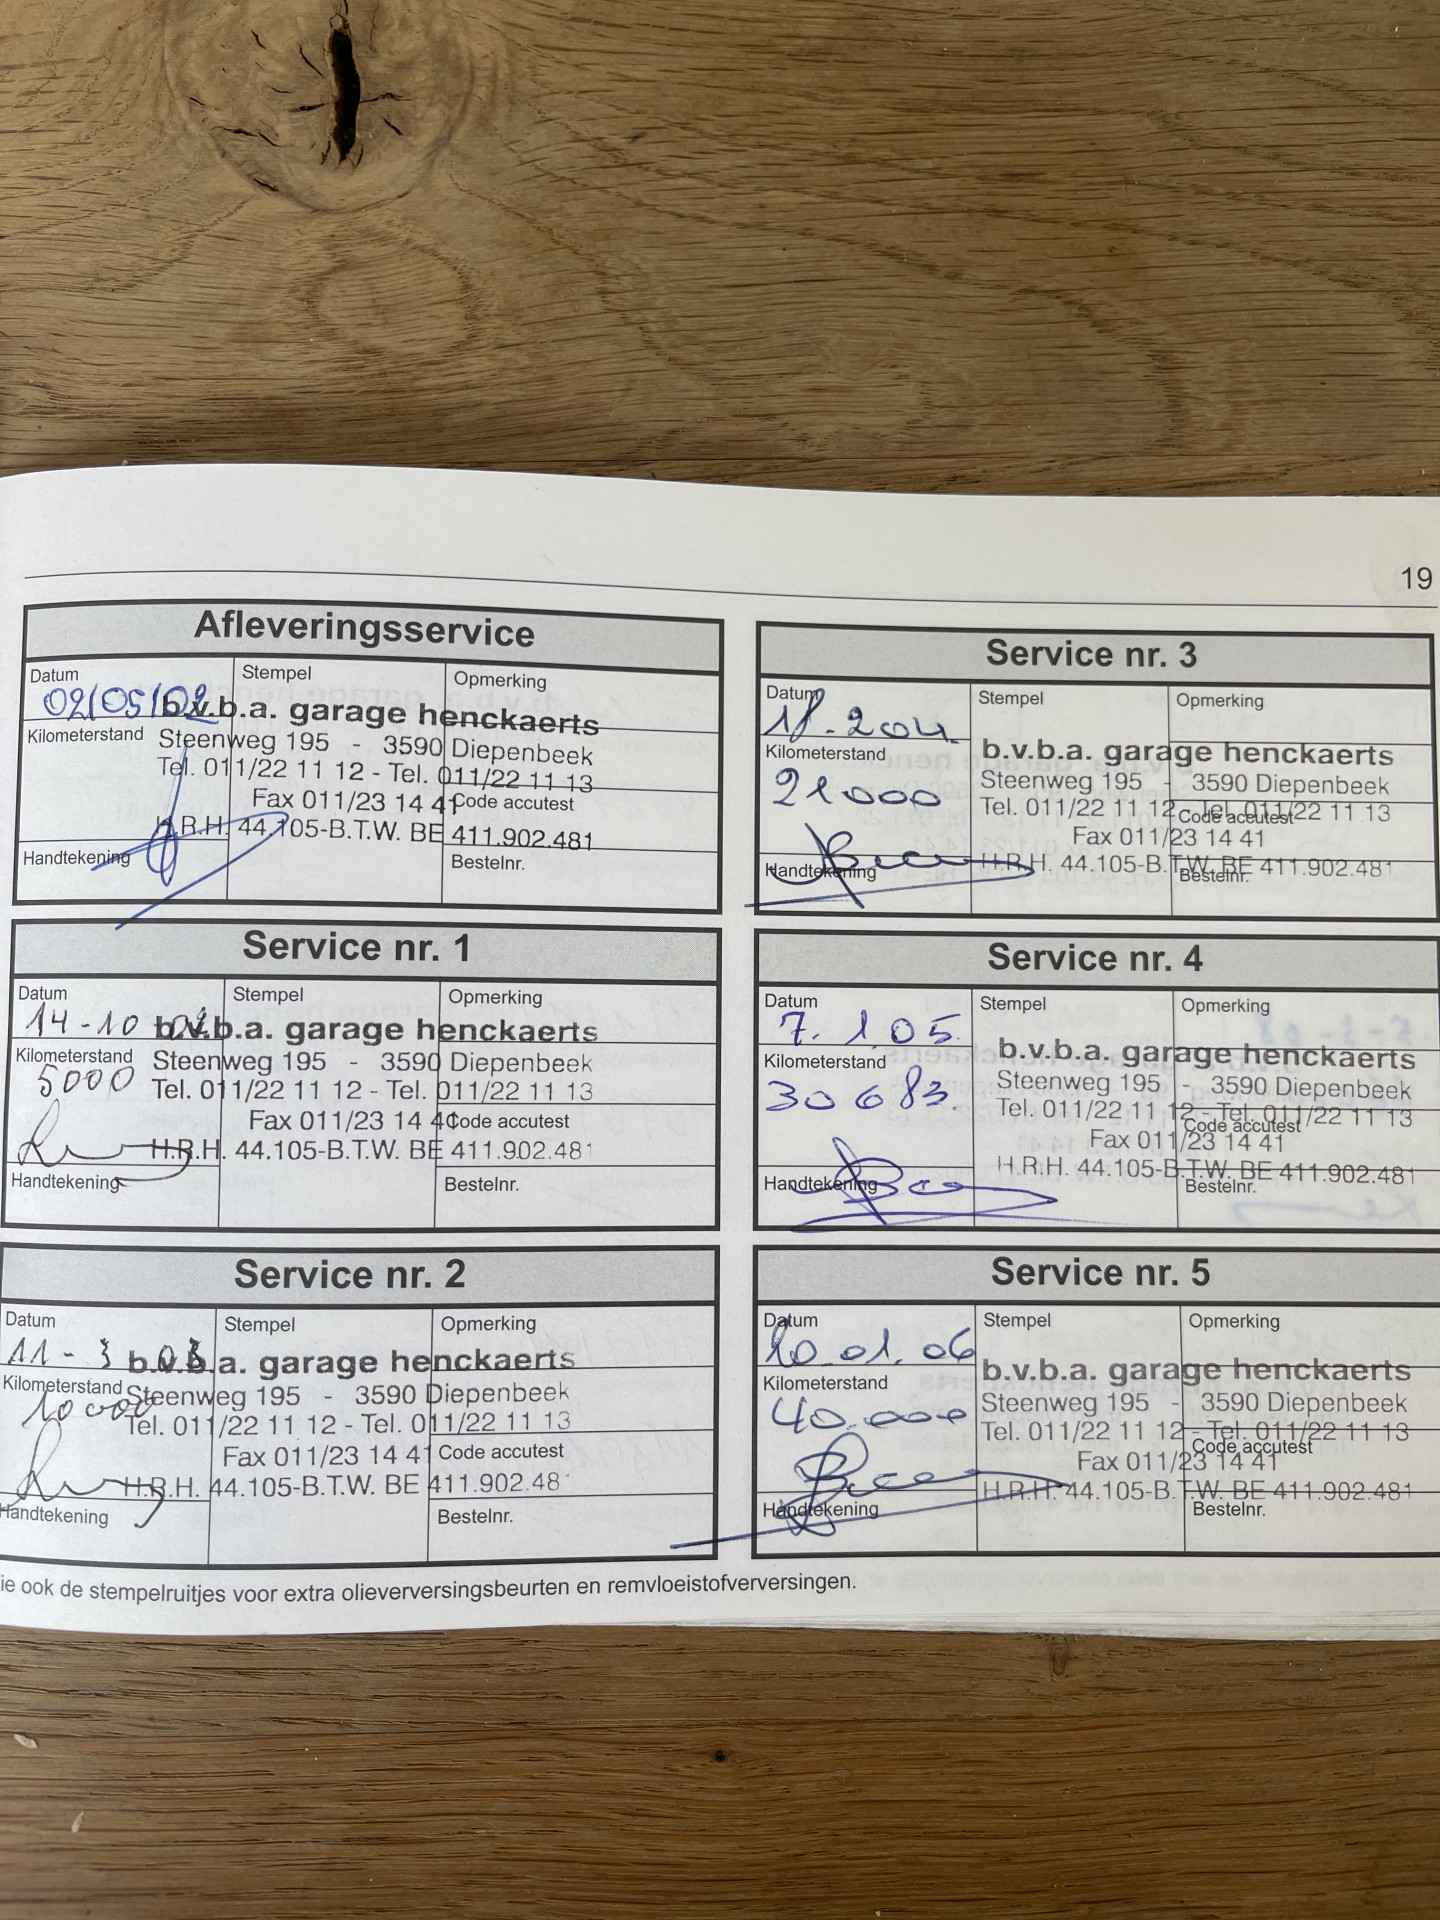 19
Afleveringsservice
Datum Stempel Opmerking
02/05/02
b.v.b.a. garage henckaerts
Kilometerstand
Steenweg 195 - 3590 Diepenbeek
Tel. 011/22 11 12 - Tel. 011/22 11 13
Fax 011/23 14 41
Code accutest
H.R.H. 44.105-B.T.W. BE 411.902.481
Handtekening
Bestelnr.
Service nr. 1
Datum Stempel Opmerking
14-10 02
b.v.b.a. garage henckaerts
Kilometerstand
5000
Steenweg 195 - 3590 Diepenbeek
Tel. 011/22 11 12 - Tel. 011/22 11 13
Fax 011/23 14 41
Code accutest
H.R.H. 44.105-B.T.W. BE 411.902.481
Handtekening
Bestelnr.
Service nr. 2
Datum Stempel Opmerking
11-3 03
b.v.b.a. garage henckaerts
Kilometerstand
10000
Steenweg 195 - 3590 Diepenbeek
Tel. 011/22 11 12 - Tel. 011/22 11 13
Fax 011/23 14 41
Code accutest
H.R.H. 44.105-B.T.W. BE 411.902.48
Handtekening
Bestelnr.
Service nr. 3
Datum Stempel Opmerking
b.v.b.a. garage henckaerts
Kilometerstand
21000
Steenweg 195 - 3590 Diepenbeek
Tel. 011/22 11 12 - Tel. 011/22 11 13
Code accutest
Fax 011/23 14 41
H.R.H. 44.105-B.T.W. BE 411.902.481
Handtekening
Bestelnr.
Service nr. 4
Datum Stempel Opmerking
7.1.05
b.v.b.a. garage henckaerts
Kilometerstand
30683.
Steenweg 195 - 3590 Diepenbeek
Tel. 011/22 11 12 - Tel. 011/22 11 13
Code accutest
Fax 011/23 14 41
H.R.H. 44.105-B.T.W. BE 411.902.481
Handtekening
Bestelnr.
Service nr. 5
Datum Stempel Opmerking
10.01.06
b.v.b.a. garage henckaerts
Kilometerstand
40.000
Steenweg 195 - 3590 Diepenbeek
Tel. 011/22 11 12 - Tel. 011/22 11 13
Code accutest
Fax 011/23 14 41
H.R.H. 44.105-B.T.W. BE 411.902.481
Handtekening
Bestelnr.
ie ook de stempelruitjes voor extra olieverversingsbeurten en remvloeistofverversingen.